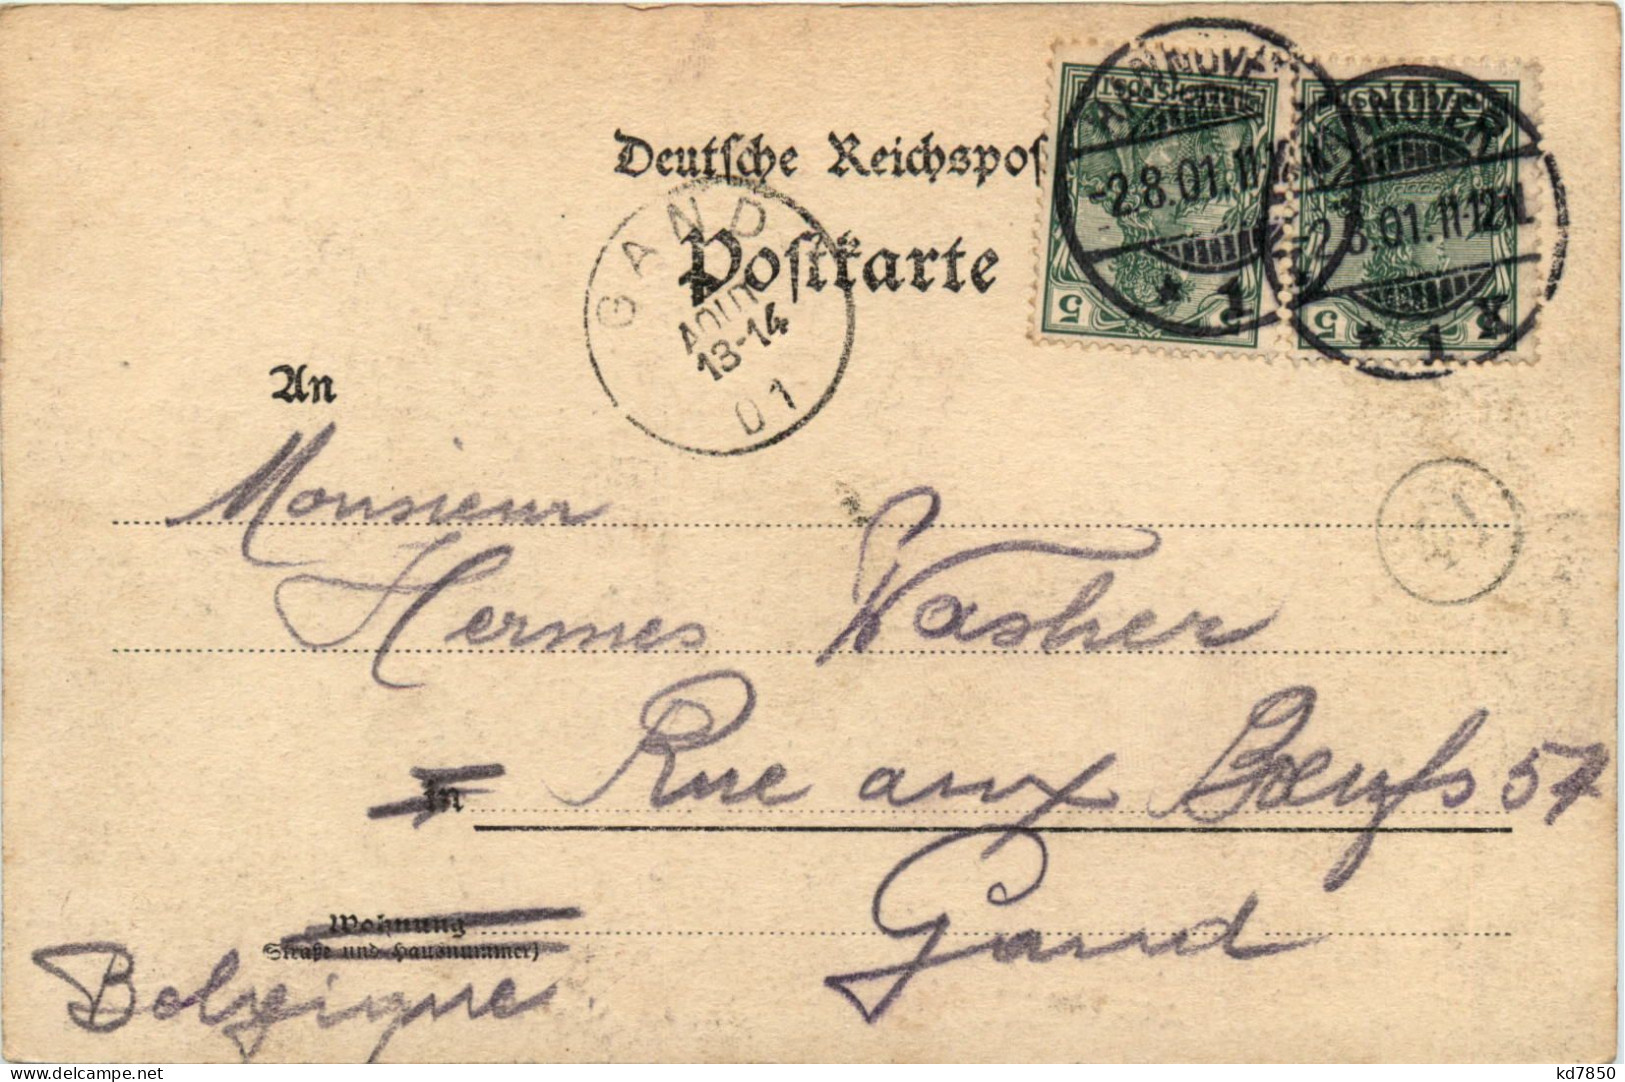 Deutsche Reichspos
Postkarte
REICHSPOST
REICHSPOST
5 5
5 5
HANNOVER
-2.8.01.11-12N.
* 1
HANNOVER
-2.8.01.11-12N.
* 1
GAND
AOUT
13-14
01
An
Monsieur
Hermes Vasher
In Rue aux Bœufs 57
Gand
Wohnung
(Straße und Hausnummer)
Belgique
kd7850